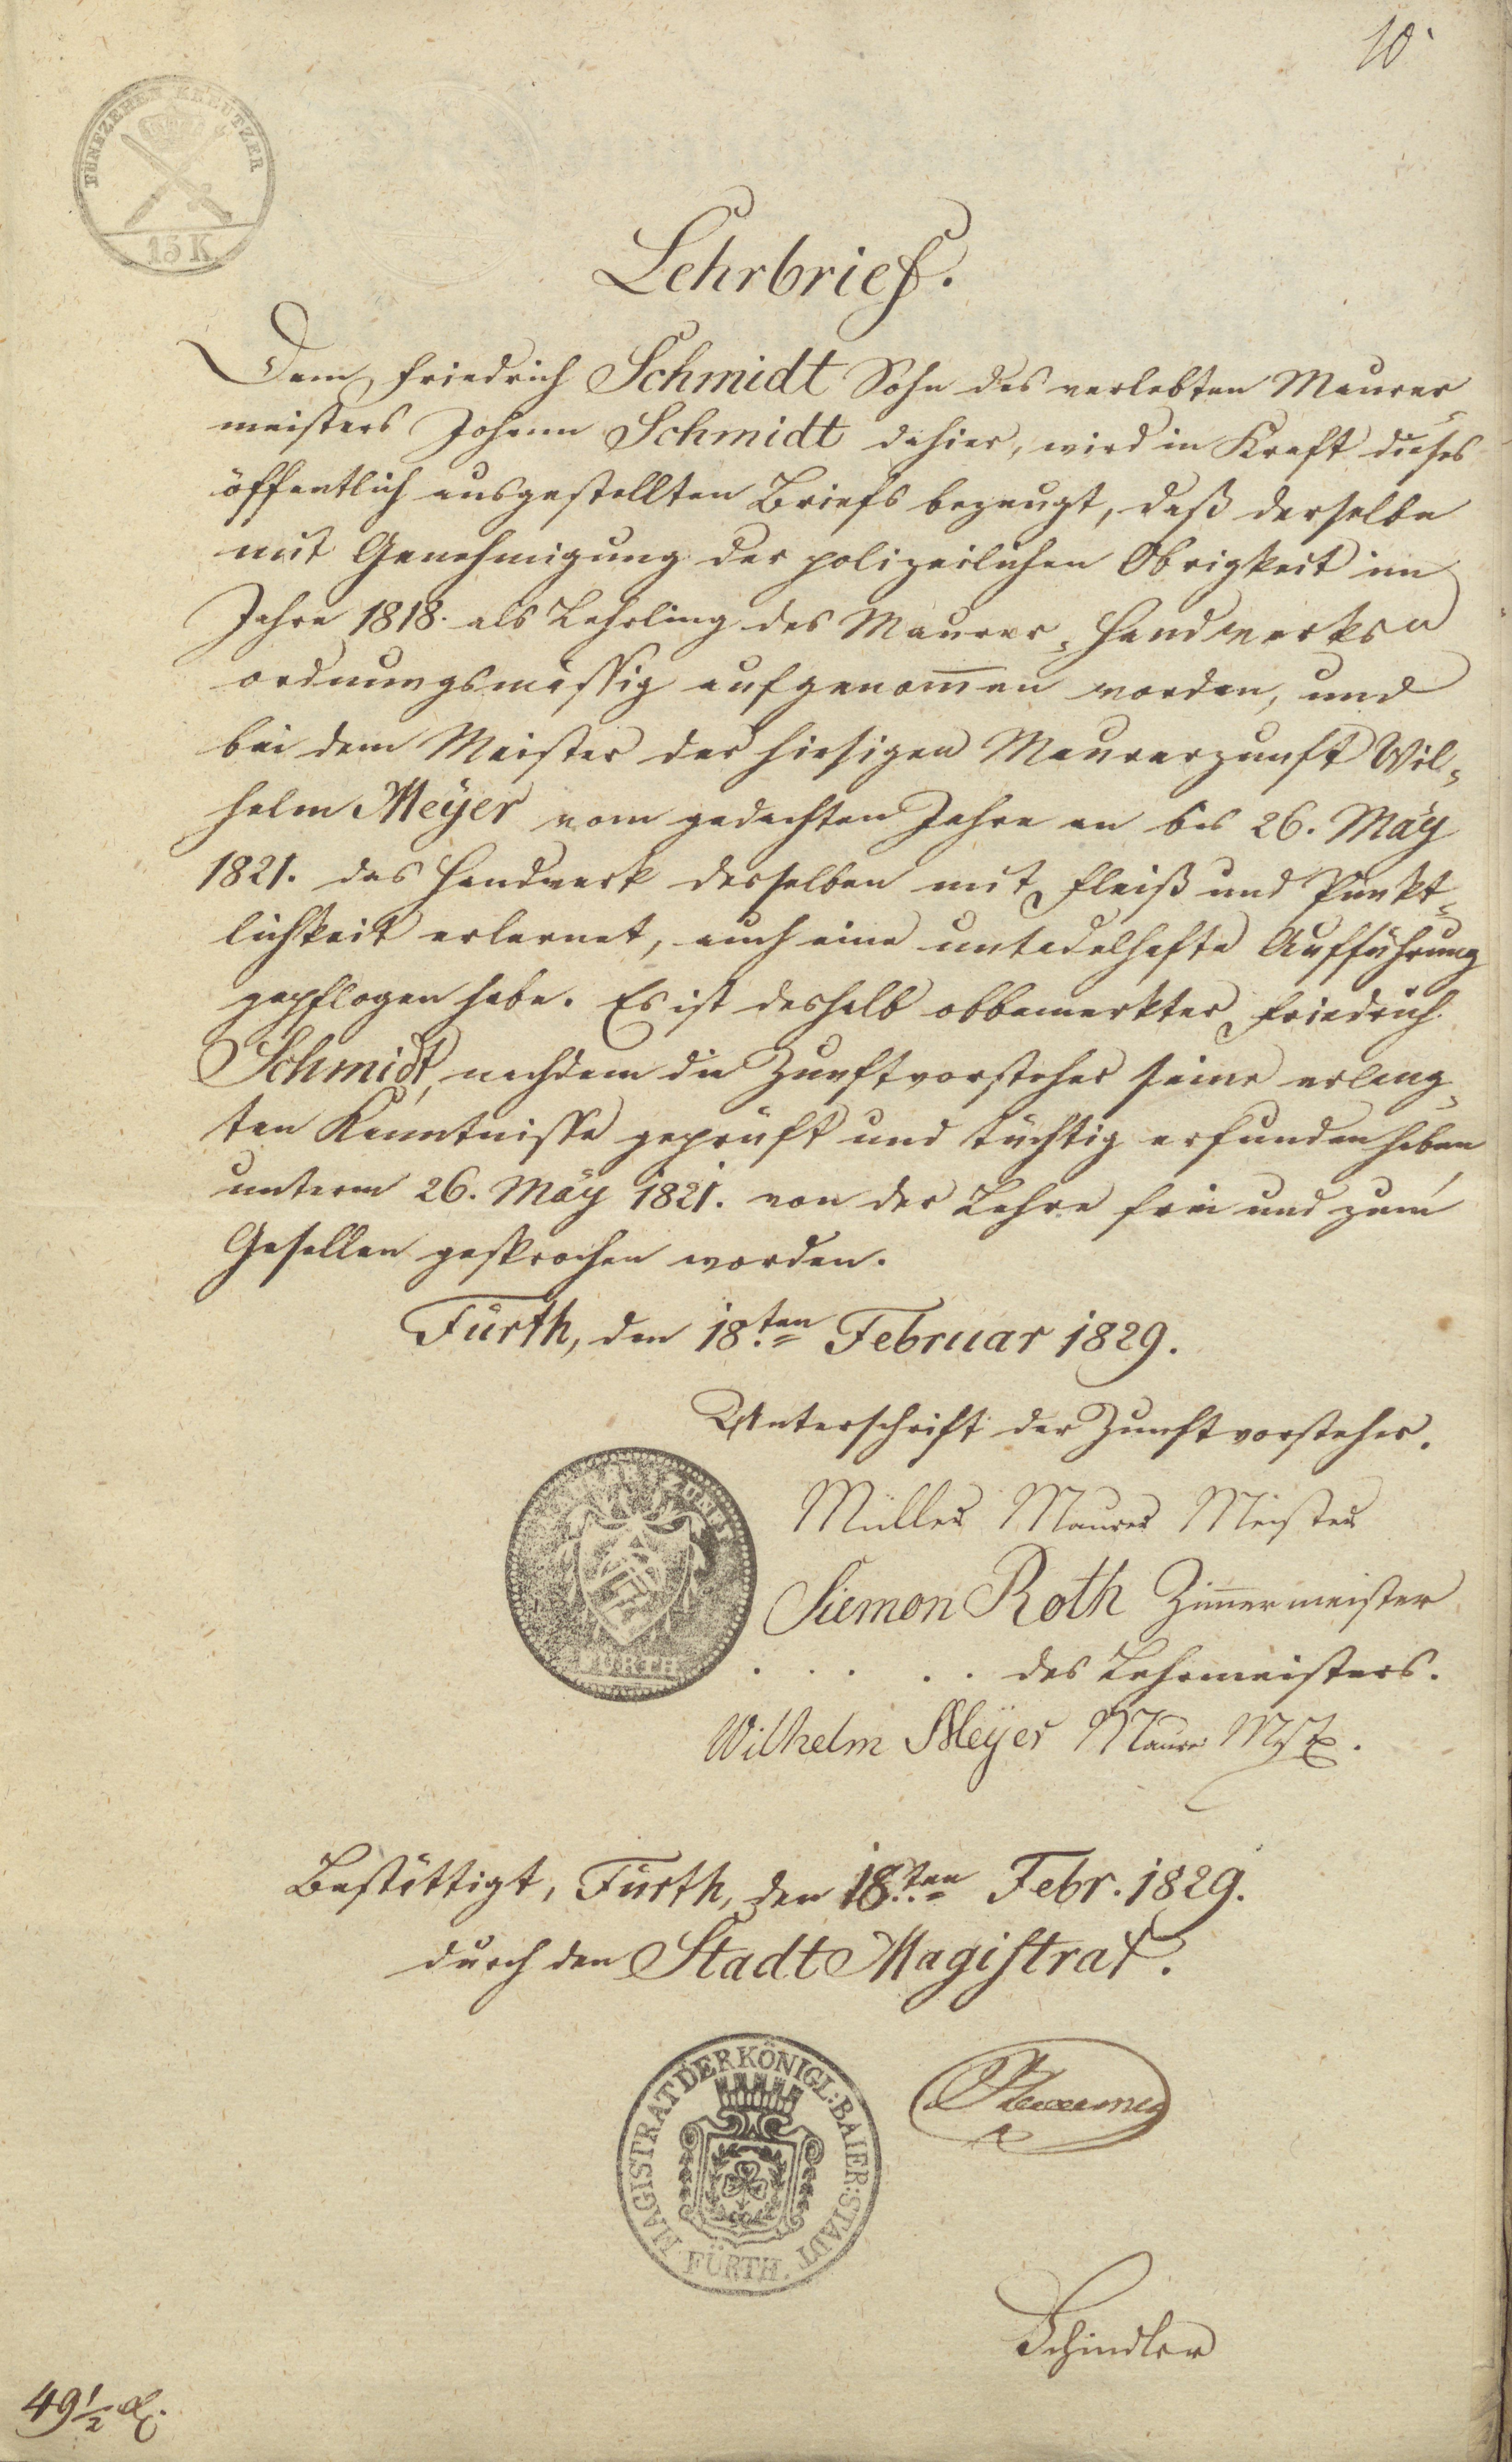 10.
FÜNFZEHEN KREUTZER
15 K
Lehrbrief.
Dem Friedrich Schmidt Sohn des verlebten Maurer
meisters Johann Schmidt dahier, wird in Kraft dieses
öffentlich ausgestellten Briefs bezeugt, daß derselbe
mit Genehmigung der polizeilichen Obrigkeit im
Jahre 1818. als Lehrling des Maurer-Handwerks
ordnungsmässig aufgenom̄en worden, und
bei dem Meister der hiesigen Maurerzunft Wil-
helm Meÿer vom gedachten Jahre an bis 26. Maÿ
1821. das Handwerk desselben mit Fleiß und Pünkt-
lichkeit erlernet, auch eine untadelhafte Aufführung
gepflogen habe. Es ist deshalb obbemerkter Friedrich
Schmidt, nachdem die Zunftvorsteher seine erlang-
ten Kenntnisse geprüft und tüchtig erfunden haben
unterm 26. Maÿ 1821. von der Lehre frei und zum
Gesellen gesprochen worden.
Fürth, den 18.ten Februar 1829.
Unterschrift der Zunftvorsteher.
ZUNFT
FÜRTH
Müller Maurer Meister
Siemon Roth Zim̄ermeister
. . . . . des Lehrmeisters.
Wilhelm Meÿer Maurer
Bestättigt, Fürth, den 18.ten Febr. 1829.
durch den Stadt Magistrat.
MAGISTRAT DER KÖNIGL: BAIER: STADT
FÜRTH.
Schindler
49 1/2 x.